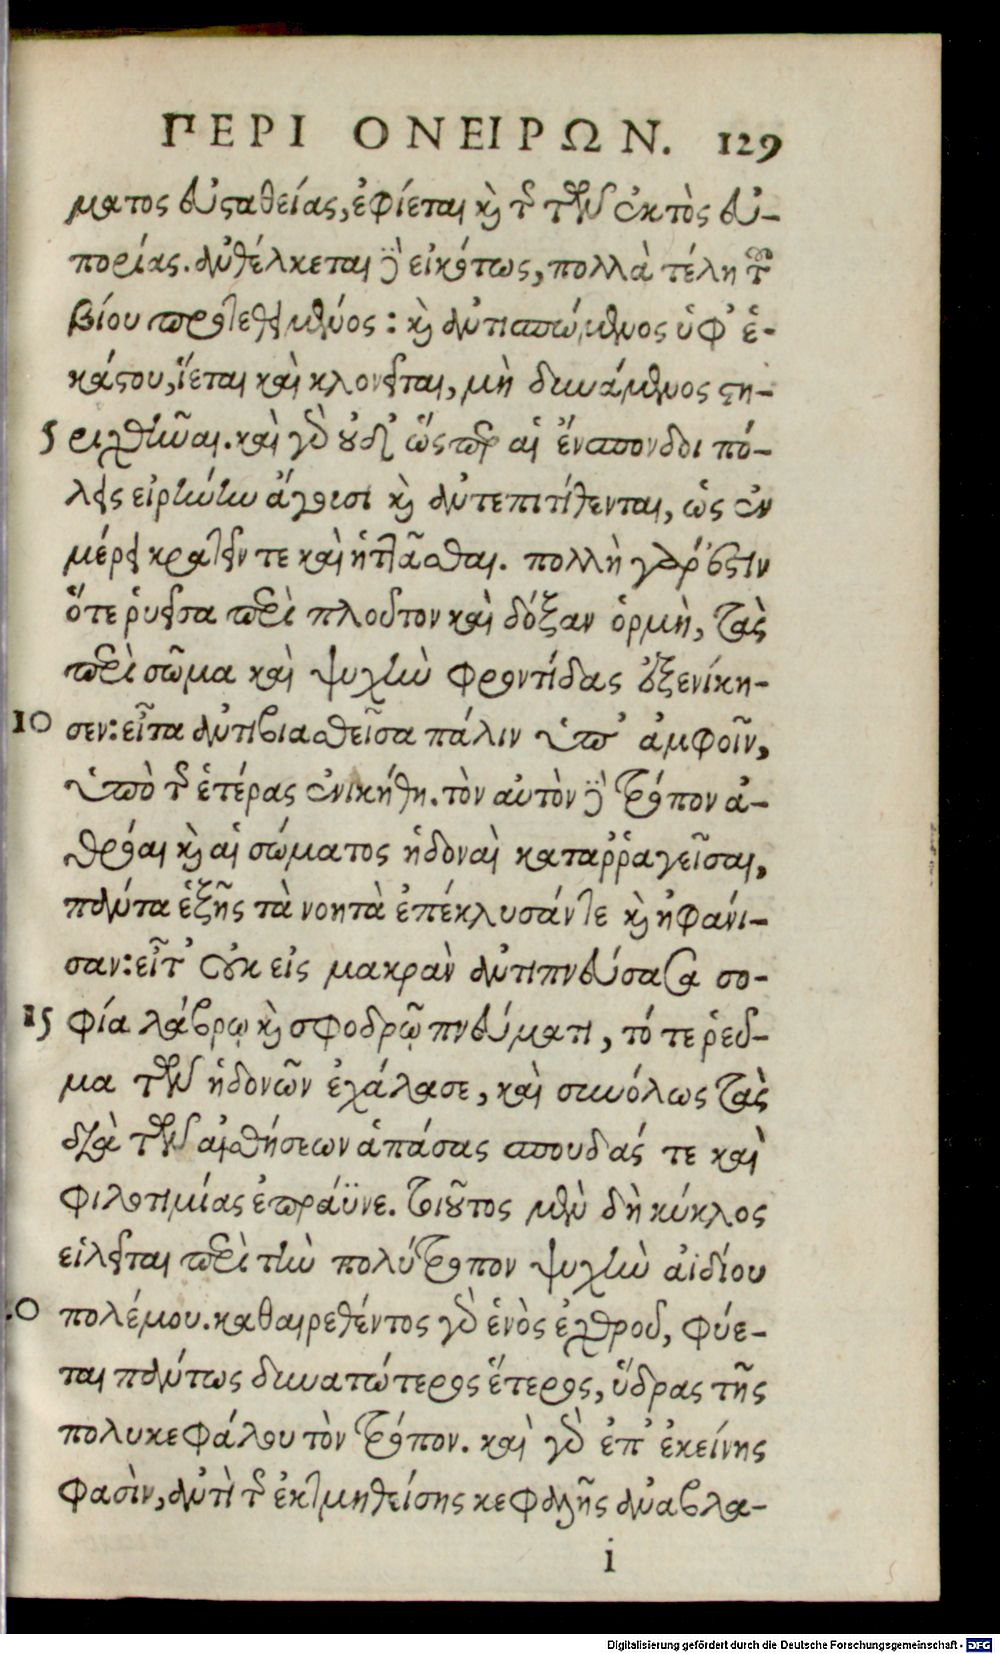 ΠΕΡΙ ΟΝΕΙΡΩΝ. 129
ματος εὐσταθείας, ἐφίεται καὶ τῆς τῶν ἐκτὸς εὐ-
πορίας. ἀνθέλκεται δὲ εἰκότως, πολλὰ τέλη τοῦ
βίου προτεθειμένος: καὶ ἀντισπώμενος ὑφ' ἑ-
κάστου, ἵεται καὶ κλονεῖται, μὴ δυνάμενος στη-
5 ριχθῆναι. καὶ γὰρ οὐδ' ὥσπερ αἱ ἔνσπονδοι πό-
λεις εἰρήνην ἄγουσι καὶ ἀντεπιτίθενται, ὡς ἐν
μέρει κρατεῖν τε καὶ ἡττᾶσθαι. πολλὴ γὰρ ἔστιν
ὅτε ῥυεῖσα περὶ πλοῦτον καὶ δόξαν ὁρμὴ, τὰς
περὶ σῶμα καὶ ψυχὴν φροντίδας ἐξενίκη-
10 σεν: εἶτα ἀντιβιασθεῖσα πάλιν ὑπ' ἀμφοῖν,
ὑπὸ τῆς ἑτέρας ἐνικήθη. τὸν αὐτὸν δὲ τρόπον ἀ-
θρόαι καὶ αἱ σώματος ἡδοναὶ καταῤῥαγεῖσαι,
πάντα ἑξῆς τὰ νοητὰ ἐπέκλυσάν τε καὶ ἠφάνι-
σαν: εἶτ' οὐκ εἰς μακρὰν ἀντιπνεύσασα σο-
15 φία λάβρῳ καὶ σφοδρῷ πνεύματι, τό τε ῥεῦ-
μα τῶν ἡδονῶν ἐχάλασε, καὶ συνόλως τὰς
διὰ τῶν αἰσθήσεων ἁπάσας σπουδάς τε καὶ
φιλοτιμίας ἐπράϋνε. τοιοῦτος μὲν δὴ κύκλος
εἱλεῖται περὶ τὴν πολύτροπον ψυχὴν ἀϊδίου
.0 πολέμου. καθαιρεθέντος γὰρ ἑνὸς ἐχθροῦ, φύε-
ται πάντως δυνατώτερος ἕτερος, ὕδρας τῆς
πολυκεφάλου τὸν τρόπον. καὶ γὰρ ἐπ' ἐκείνης
φασὶν, ἀντὶ τῆς ἐκτμηθείσης κεφαλῆς ἀναβλα-
i
Digitalisierung gefördert durch die Deutsche Forschungsgemeinschaft - DFG